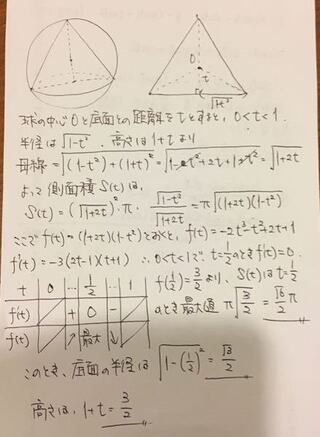 O
O
t
√1-t²
球の中心Oと底面との距離をtとすると、0<t<1.
半径は√1-t²、高さは1+tより
母線=√(1-t²)+(1+t)²=√1-t²+2t+1+t²=√1+2t
よって側面積S(t)は、
S(t)=(√1+2t)²・π・√1-t²/√1+2t=π√(1+2t)(1-t²)
ここでf(t)=(1+2t)(1-t²)とおくと、f(t)=-2t³-t²+2t+1
f'(t)=-3(2t-1)(t+1) ∴0<t<1で、t=1/2のときf'(t)=0.
t 0 … 1/2 … 1
f'(t) + 0 -
f(t) ↗ 最大 ↘
f(1/2)=3/2より、S(t)はt=1/2
のとき最大値 π√3/2=√6/2π
このとき、底面の半径は √1-(1/2)²=√3/2
高さは、1+t=3/2